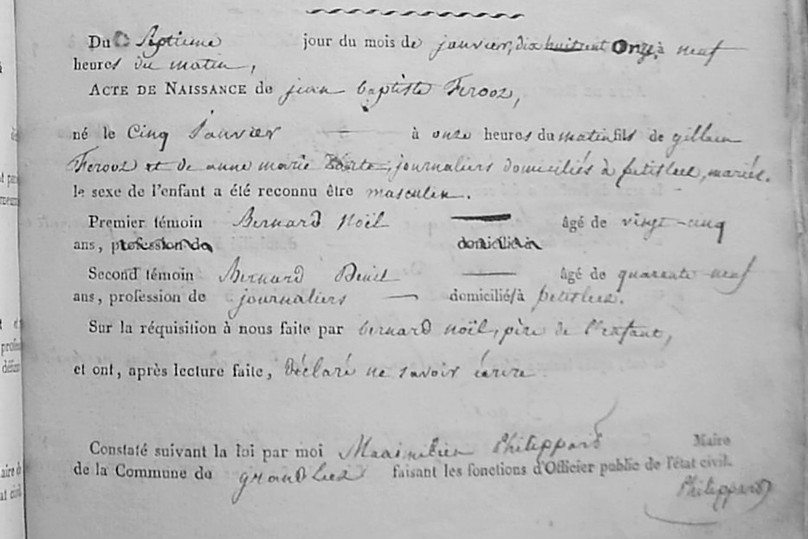 Du Septieme jour du mois de janvier, dix huitcent onze, à neuf
heures du matin,
ACTE DE NAISSANCE de jean baptiste Ferooz,
né le Cinq Janvier à onze heures du matin fils de gillain
Ferooz et de anne marie journaliers domiciliés à petitleez, mariés.
le sexe de l'enfant a été reconnu être masculin.
Premier témoin Bernard Noël âgé de vingt-cinq
ans, profession de domicilié à
Second témoin Bernard âgé de quarante neuf
ans, profession de journaliers domicilié à petitleez.
Sur la réquisition à nous faite par bernard noël, père de l'enfant,
et ont, après lecture faite, déclaré ne savoir écrire
Constaté suivant la loi par moi Maximilien Philippard Maire
de la Commune de grandleez faisant les fonctions d'Officier public de l'état civil.
Philippard